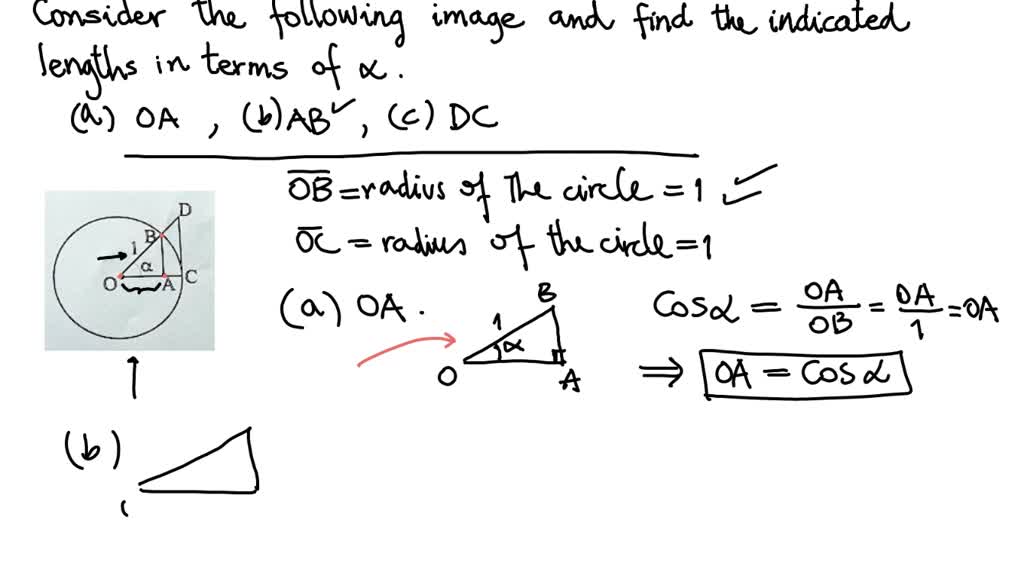 Consider the following image and find the indicated
lengths in terms of α.
(a) OA , (b) AB ✓, (c) DC
O͞B͞ = radius of the circle = 1 ✓
O͞C͞ = radius of the circle = 1
D
B
1
α
O A C
(a) OA .
B
1
α
O A
Cosα = OA/OB = OA/1 = OA
⇒ OA = Cosα
(b)